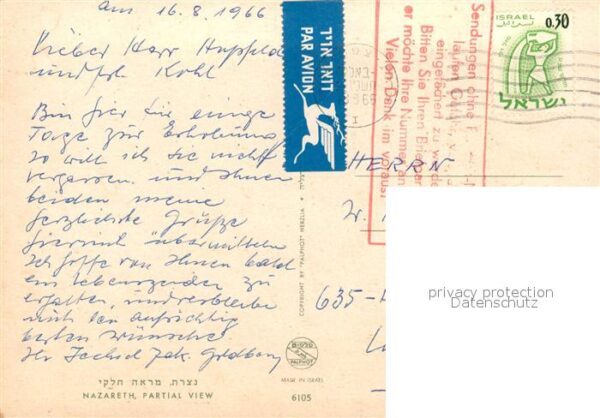 am 16.8.1966
Lieber Herr Hupfeld
und Frl. Kohl
Bin hier für einige
Tage zur Erholung
so will ich sie nicht
vergessen und Ihnen
beiden meine
herzlichste Grüße
hiermit übermitteln
Ich hoffe von Ihnen bald
ein Lebenszeichen zu
erhalten, und verbleibe
mit den aufrichtig
besten Wünsche
Ihr
נצרת, מראה חלקי
NAZARETH, PARTIAL VIEW
COPYRIGHT BY "PALPHOT" HERZLIA
PALPHOT
MADE IN ISRAEL
6105
דואר אויר
PAR AVION
Sendungen ohne
laufen
eingefächert zu
Bitten Sie Ihren
er möchte Ihre Nummer
Vielen Dank im voraus!
ISRAEL
0.30
ישראל
HERRN
635-
privacy protection
Datenschutz